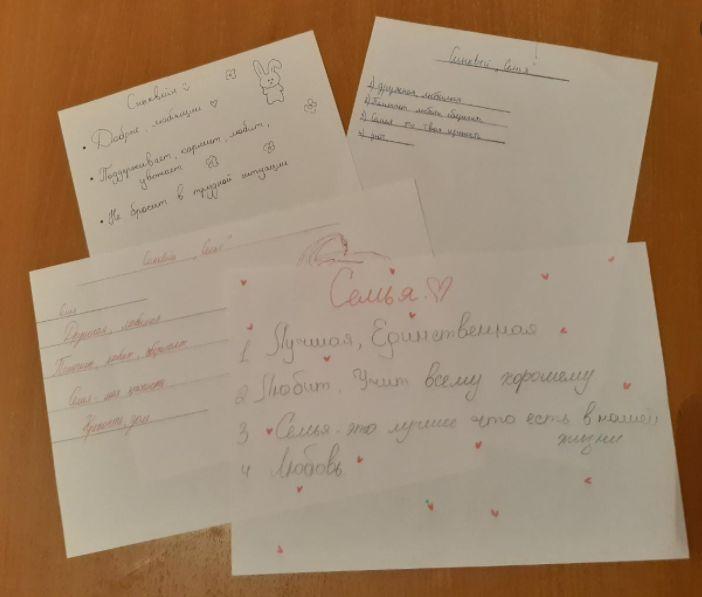 Синквейн
• Добрые, любящии
• Поддерживает, кормит, любит,
уважает
• Не бросит в трудной ситуации
Синквей „Семья"
1) дружная, любимая
2) Помогает любит оберегать
3) Семья то твоя крепость
4)
Синквей „Семья"
Дружная, любимая
Помогает, любит,
Семья - моя
Крепость, дом
Семья.
1 Лучшая, Единственная
2 Любит, Учит всему хорошему
3 Семья - это лучшее что есть в нашей
жизни
4 Любовь